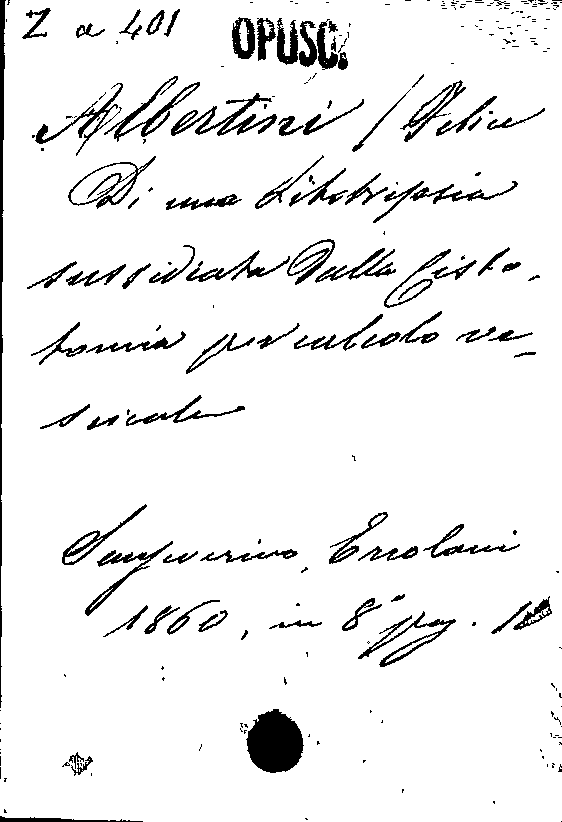 Z a 401
OPUSC.
Albertini / Felice
Di una Litotripsia
sussidiata dalla Cisto-
tomia per calcolo ve-
scicale
Sanseverino, Ercolani
1860, in 8° pag.